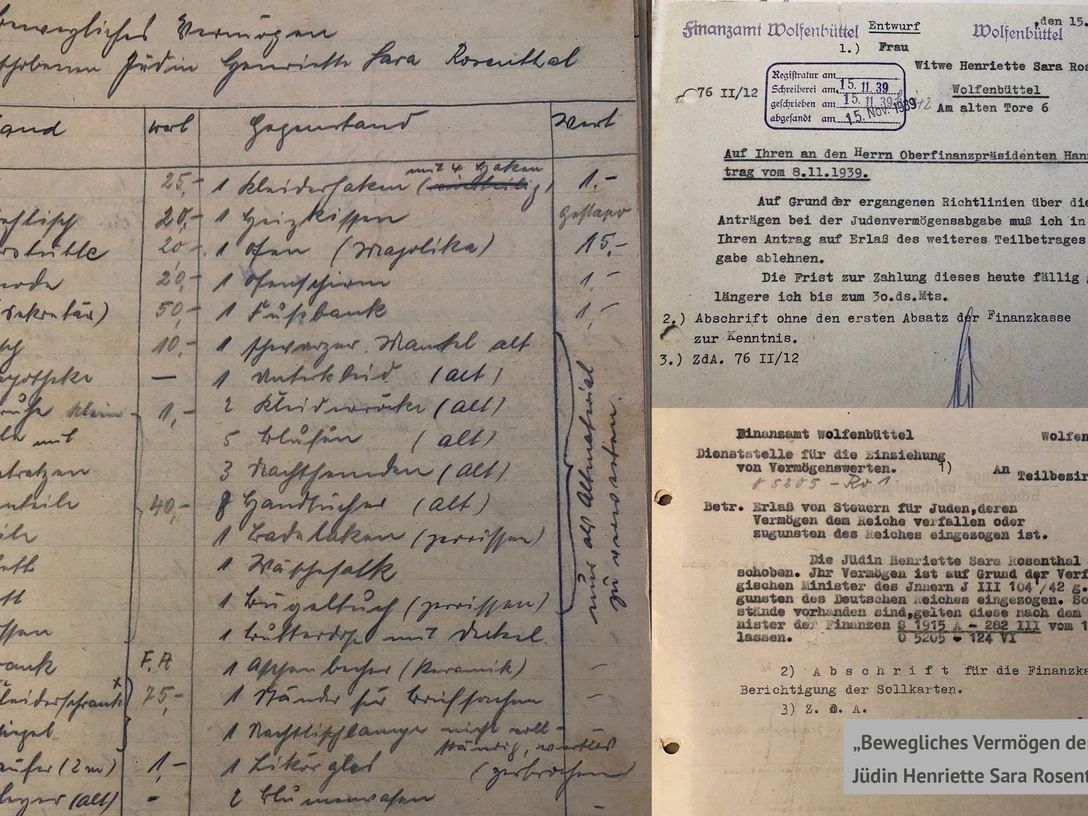 bewegliches Vermögen
Jüdin Henriette Sara Rosenthal
wert Gegenstand Wert
25,- 1 Kleiderhaken mit 4 Haken 1.-
20,- 1 Heizkissen Gestapo
20- 1 Ofen (Majolika) 15.-
20,- 1 Ofenschirm 1.-
Sekretär) 50,- 1 Fußbank 1.-
10,- 1 schwarzer Mantel alt
apotheke — 1 Unterkleid (alt)
klein 1,- 2 Kleiderröcke (alt)
mit 5 Blusen (alt)
3 Nachthemden (alt)
40,- 8 Handtücher (alt)
1 Badelaken (zerrissen)
1 Wäschesack
1 Bügeltuch (zerrissen)
1 Butterdose mit Deckel
nur als Altmaterial
zu verwerten.
F.A 1 Aschenbecher (Keramik) -
Kleiderschrank x 75,- 1 Ständer für Briefsachen -
1 Nachttischlampe nicht voll-
ständig, wertlos
äufer (2 m) 1,- 1 Likörglas (zerbrochen)
leger (alt) - 2 Blumenvasen -
Finanzamt Wolfenbüttel Entwurf Wolfenbüttel ,den 15.
1.) Frau
Witwe Henriette Sara Ros
76 II/12 Wolfenbüttel
Am alten Tore 6
Registratur am
Schreiberei am 15. 11. 39
geschrieben am 15. 11. 39
abgesandt am 15. Nov. 1939
Auf Ihren an den Herrn Oberfinanzpräsidenten Han
trag vom 8.11.1939.
Auf Grund der ergangenen Richtlinien über die
Anträgen bei der Judenvermögensabgabe muß ich in
Ihren Antrag auf Erlaß des weiteres Teilbetrages
gabe ablehnen.
Die Frist zur Zahlung dieses heute fällig
längere ich bis zum 3o.ds.Mts.
2.) Abschrift ohne den ersten Absatz der Finanzkasse
zur Kenntnis.
3.) ZdA. 76 II/12
Finanzamt Wolfenbüttel Wolfen
Dienststelle für die Einziehung
von Vermögenswerten. 1) An Teilbezir
O 5205 - Ro 1
Betr. Erlaß von Steuern für Juden,deren
Vermögen dem Reiche verfallen oder
zugunsten des Reiches eingezogen ist.
Die Jüdin Henriette Sara Rosenthal
schoben. Jhr Vermögen ist auf Grund der Verf
gischen Minister des Jnnern J III 104 /42 g.
gunsten des Deutschen Reiches eingezogen. So
stände vorhanden sind,gelten diese nach dem
nister der Finanzen S 1915 A - 282 III vom 1
lassen. O 5205 - 124 VI
2) A b s c h r i f t für die Finanzka
Berichtigung der Sollkarten.
3) Z. d. A.
„Bewegliches Vermögen de
Jüdin Henriette Sara Rosent